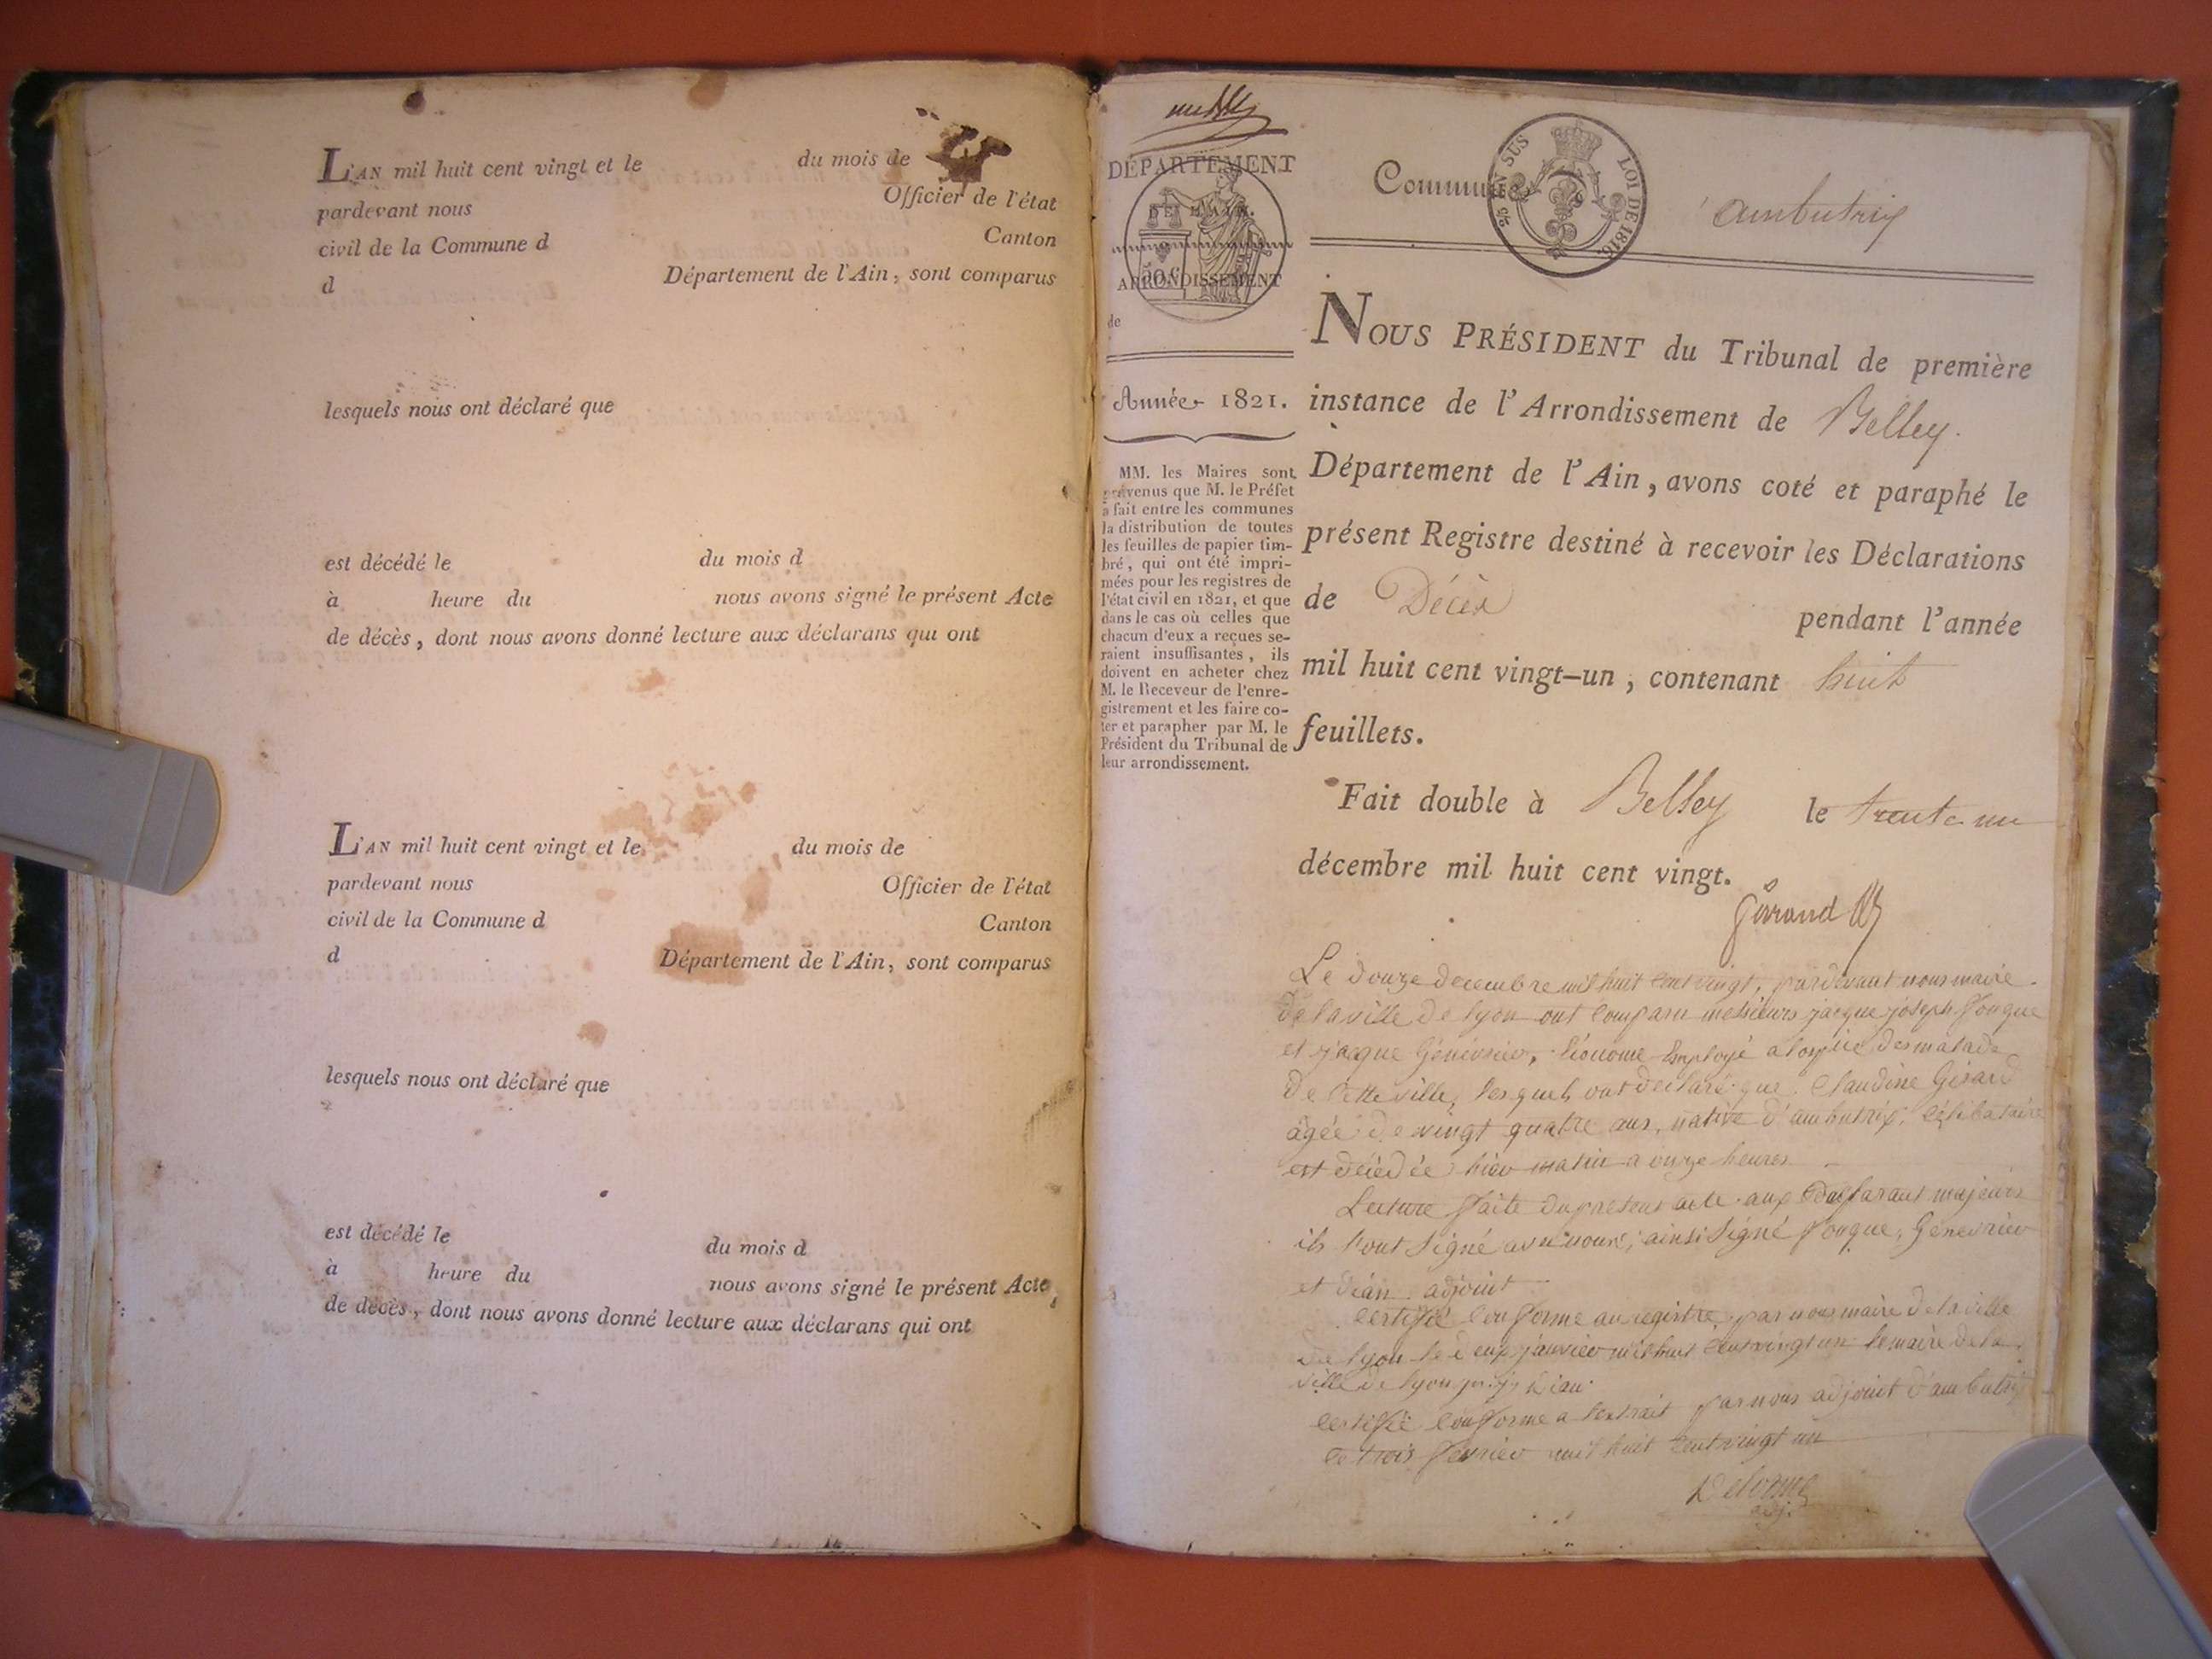 L'AN mil huit cent vingt et le du mois de
pardevant nous Officier de l'état
civil de la Commune d Canton
d Département de l'Ain, sont comparus
lesquels nous ont déclaré que
est décédé le du mois d
à heure du nous avons signé le présent Acte
de décès, dont nous avons donné lecture aux déclarans qui ont
L'AN mil huit cent vingt et le du mois de
pardevant nous Officier de l'état
civil de la Commune d Canton
d Département de l'Ain, sont comparus
lesquels nous ont déclaré que
est décédé le du mois d
à heure du nous avons signé le présent Acte
de décès, dont nous avons donné lecture aux déclarans qui ont
DÉPARTEMENT
DE L'AIN.
50 C
ARRONDISSEMENT
de
Année 1821.
MM. les Maires sont
prévenus que M. le Préfet
a fait entre les communes
la distribution de toutes
les feuilles de papier tim-
bré, qui ont été impri-
mées pour les registres de
l'état civil en 1821, et que
dans le cas où celles que
chacun d'eux a reçues se-
raient insuffisantes, ils
doivent en acheter chez
M. le Receveur de l'enre-
gistrement et les faire co-
ter et parapher par M. le
Président du Tribunal de
leur arrondissement.
Commune ambutrix
EN SUS LOI DE 1816.
NOUS PRÉSIDENT du Tribunal de première
instance de l'Arrondissement de Belley.
Département de l'Ain, avons coté et paraphé le
présent Registre destiné à recevoir les Déclarations
de Décès pendant l'année
mil huit cent vingt-un, contenant huit
feuillets.
Fait double à Belley le trente un
décembre mil huit cent vingt.
Le douze decembre mil huit cent vingt, pardevant nous maire
de la ville de lyon ont comparu messieurs jacque joseph fouque
et jacque Génévrier, économe Employé a lospice des malade
de cette ville, lesquels ont declaré que Claudine Gérard
âgée de vingt quatre ans, native d'ambutrix, célibataire
est décédée hier matin a onze heures
Lecture faite du present acte aux declarant majeurs
ils l'ont signé avec nous; ainsi signé fouque, Génévrier
et déan adjoint
certifié conforme au registre par nous maire de la ville
de lyon le deux janvier mil huit cent vingt un le maire de la
ville de lyon
certifié conforme a l'extrait par nous adjoint d'ambutrix
le trois fevrier mil huit cent vingt un
Delorme
adj.